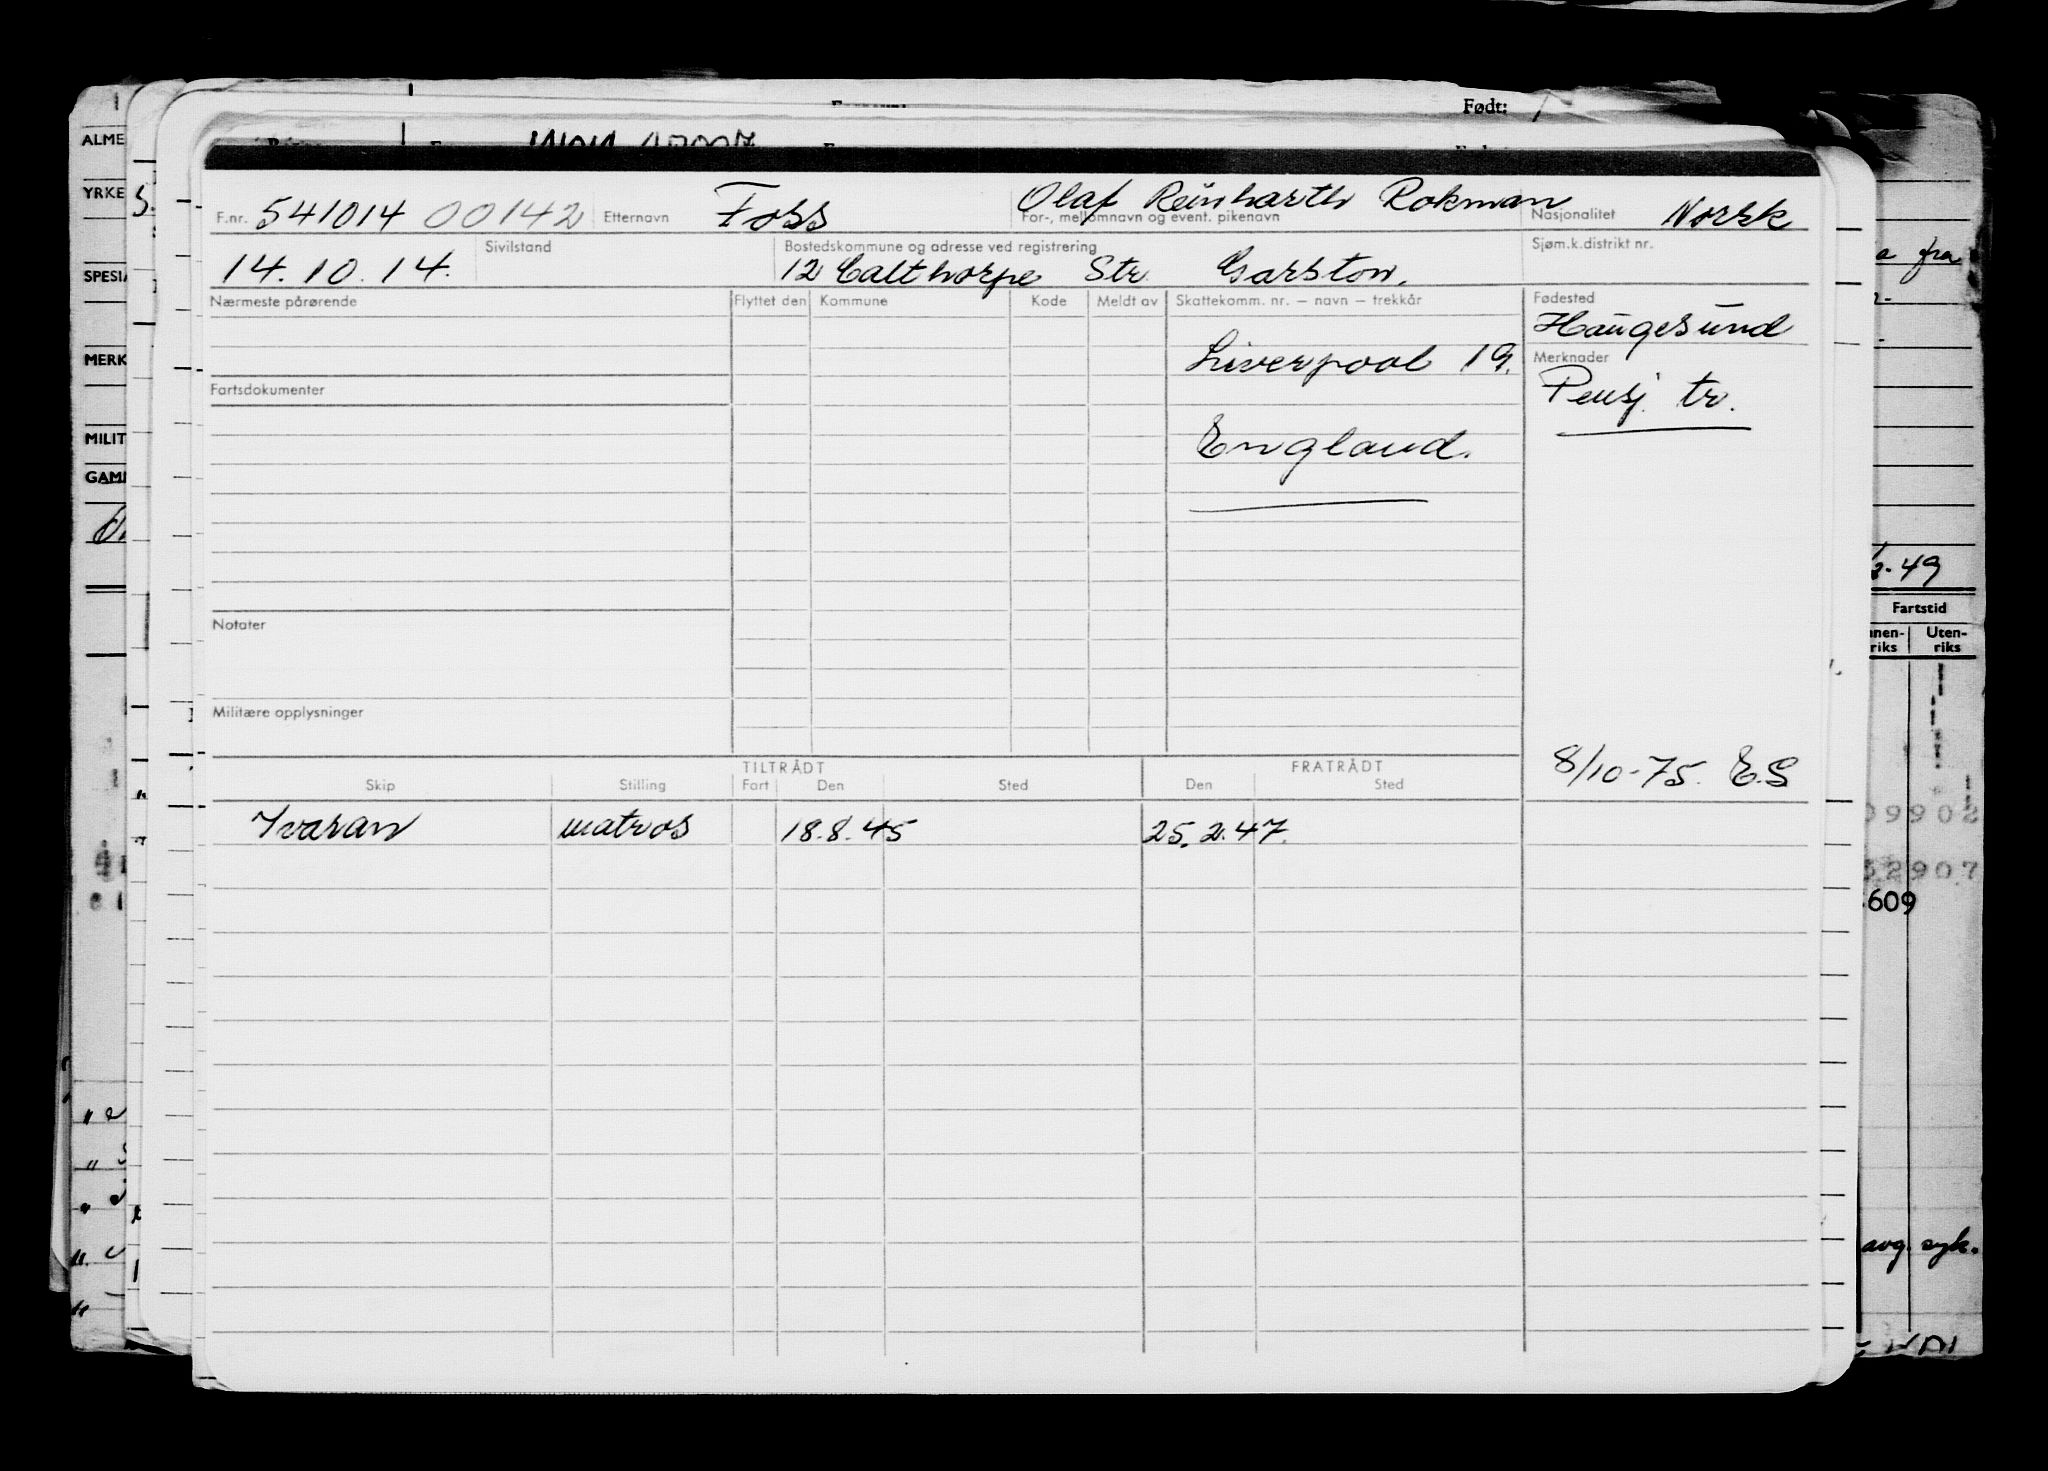 Født:
ALME
YRKE
S.
F.nr. 541014 00142 Etternavn Foss Olaf Reinharth Rokman For-, mellomnavn og event. pikenavn Nasjonalitet Norsk
14.10.14. Sivilstand Bostedskommune og adresse ved registrering 12 Calthorpe Str. Garston. Sjøm.k.distrikt nr.
SPESIA
fra
Nærmeste pårørende Flyttet den Kommune Kode Meldt av Skattekomm. nr. – navn – trekkår Fødested
Haugesund
Liverpool 19. Merknader
MERK
Fartsdokumenter Pensj. tr.
MILIT
England.
GAML
2.49
Fartstid
Notater
nnen- Uten-
riks riks
Militære opplysninger
8/10-75. E.S
TILTRÅDT FRATRÅDT
Skip Stilling Fart Den Sted Den Sted
Ivaran matros 18.8.45 25.2.47.
09902
52907
609
avg. syk.